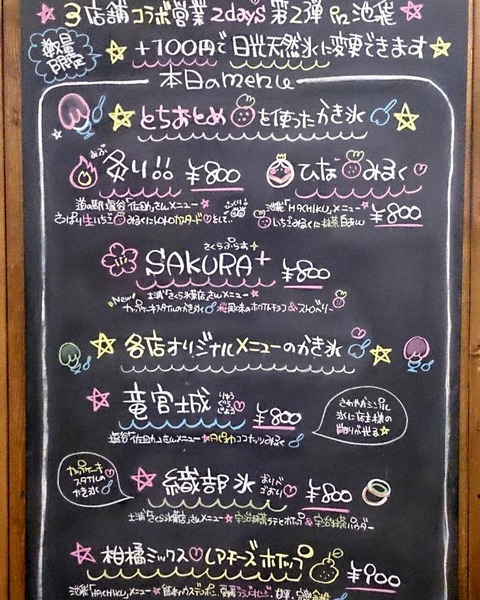 3店舗コラボ営業2days第2弾 in 池袋
数量限定
+100円で日光天然氷に変更できます
本日のmenu
とちおとめを使ったかき氷
あぶ
炙り ¥800
ひなみるく
道の駅塩谷「佐田」さんメニュー
池袋「HACHIKU」メニュー ¥800
いちごみるくに抹茶白あん
さくらぷらす
SAKURA+ ¥800
New
土浦「さくら氷菓店」さんメニュー
カップケーキスタイルのかき氷 桜風味のホワイトチョコ&ストロベリー
各店オリジナルメニューのかき氷
竜宮城 りゅうぐうじょう ¥800
塩谷「佐田」さんメニュー ココナッツみるく
さわやかミシル
氷に店主様の
カップケーキ
スタイルの
かき氷
織部氷 おりべごおり ¥800
土浦「さくら氷菓店」さんメニュー 宇治抹茶ラテとホイップ&宇治抹茶パウダー
柑橘ミックス レアチーズホイップ
¥900
池袋「HACHIKU」メニュー